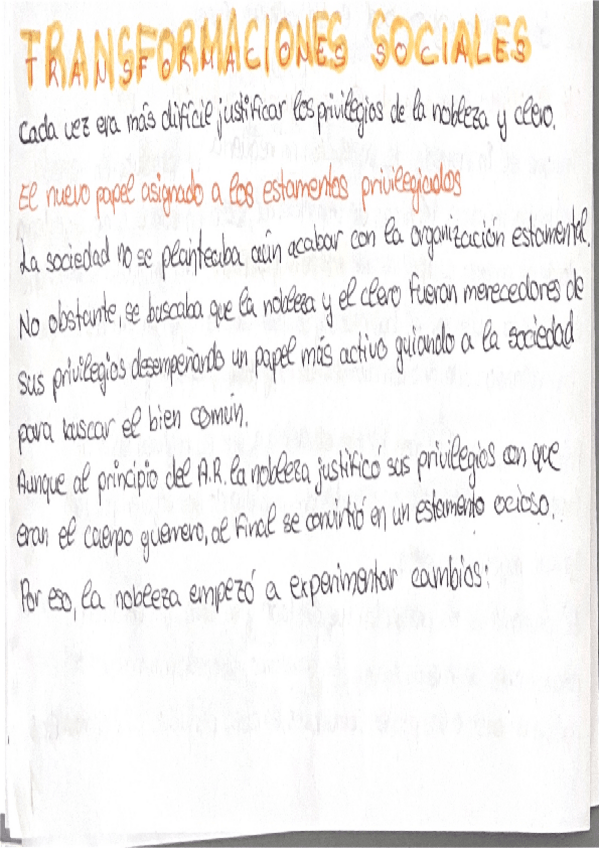 TRANSFORMACIONES SOCIALES
Cada vez era más difícil justificar los privilegios de la nobleza y clero.
El nuevo papel asignado a los estamentos privilegiados
La sociedad no se planteaba aún acabar con la organización estamental.
No obstante, se buscaba que la nobleza y el clero fueran merecedores de
sus privilegios desempeñando un papel más activo guiando a la sociedad
para buscar el bien común.
Aunque al principio del A.R. la nobleza justificó sus privilegios con que
eran el cuerpo guerrero, al final se convirtió en un estamento ocioso.
Por eso, la nobleza empezó a experimentar cambios: